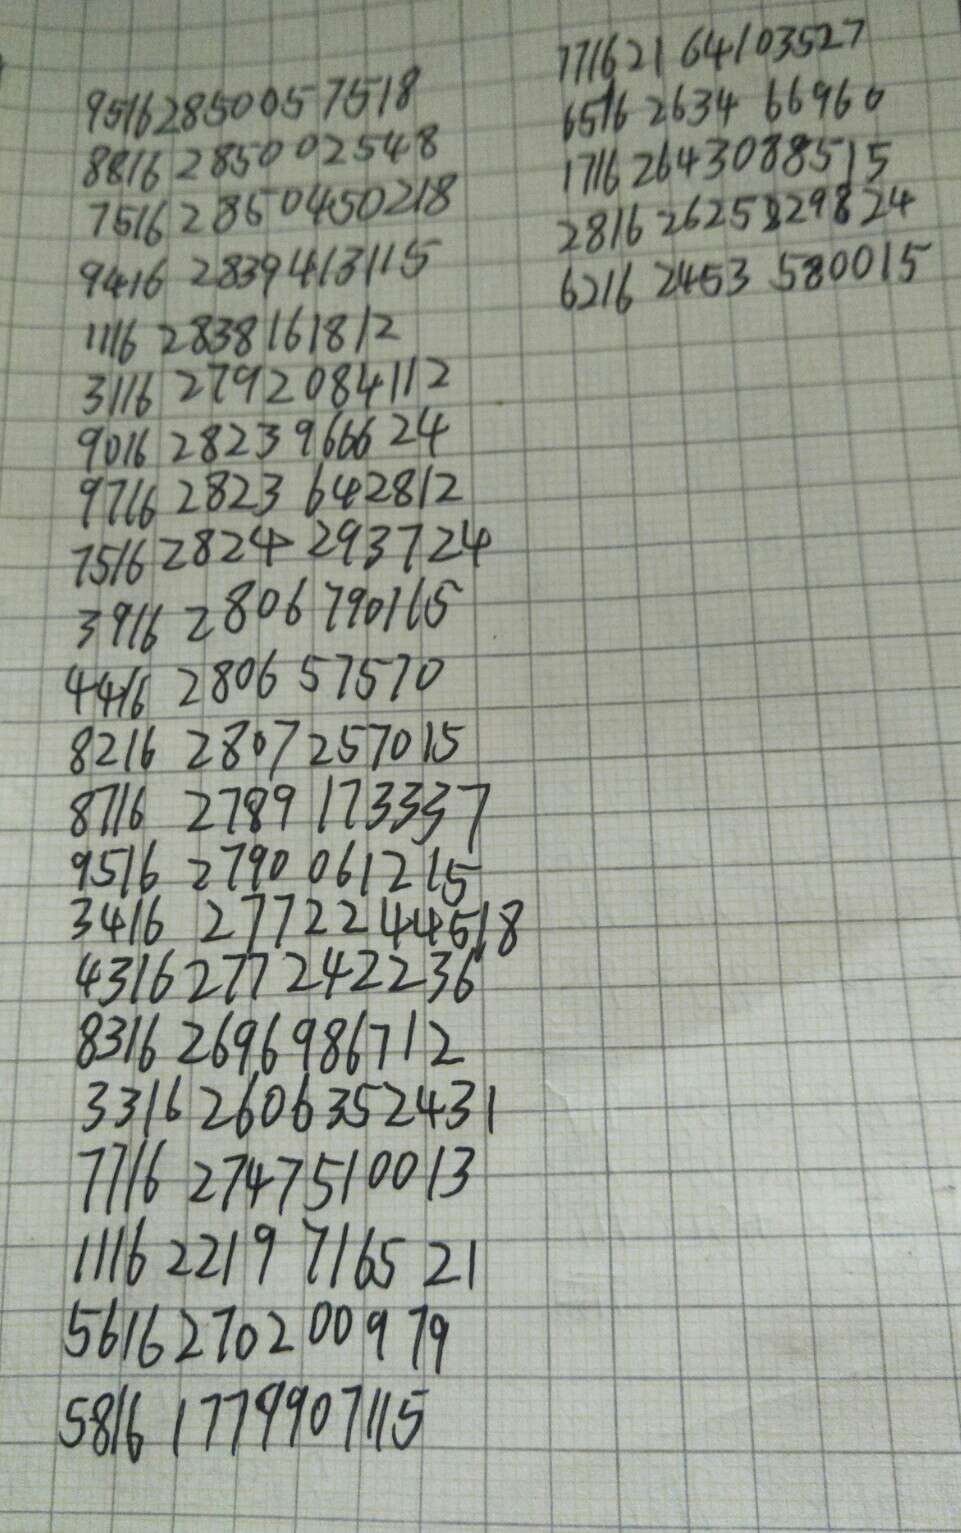 9516285005 7518
8816 285002548
7516 2850450218
9416 2839413115
1116 2838161812
3116 2792084112
9016 2823966624
9716 2823 642812
7516 2824 293724
3916 2806 790165
4416 2806 57570
8216 2807 257015
8716 2789 173337
9516 2790 061215
3416 2772244518
4316277 242236
8316 2696986712
3316 2606352431
7716 2747510013
1116 2219 7165 21
5616270200979
5816 1779907115
771621 64103527
6516 2634 66960
1716 2643088515
2816 2625829824
6216 2453 580015